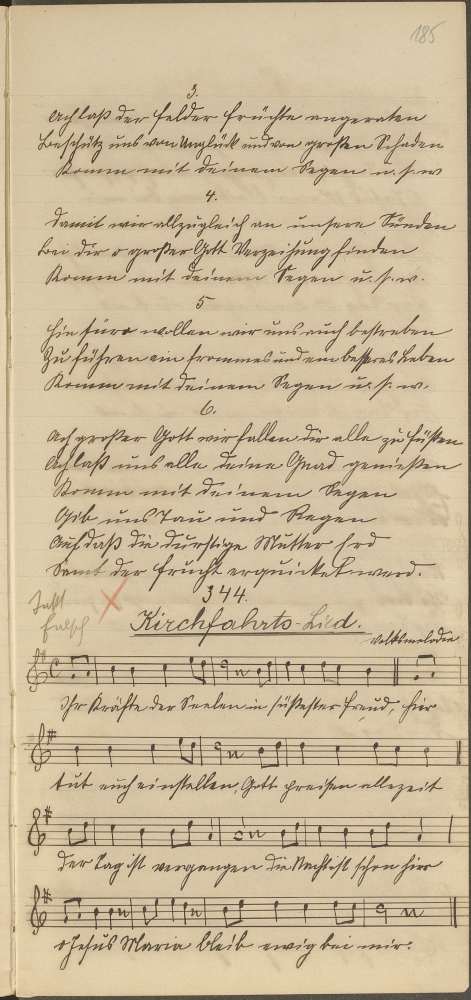 185
3.
Ach laß der Felder Früchte angeraten
Beschütz uns von Unglück und von großen Schaden
Komm mit deinem Segen u. s. w
4.
Damit wir allzugleich an unsere Sünden
Bei dir o großer Gott Verzeihung finden
Komm mit deinem Segen u. s. w.
5
Hinfüro wollen wir uns auch bestreben
Zu führen ein frommes und ein besseres Leben
Komm mit deinem Segen u. s. w.
6.
Ach großer Gott wir fallen dir alle zu Füssen
Ach laß uns alle deine Gnad genießen
Komm mit deinem Segen
Gib uns Tau und Regen
Auf daß die durstige Mutter Erd
Samt der Frucht erquicket werd.
344.
Takt
falsch
Kirchfahrts-Lied.
Volksmelodie
Ihr Kräfte der Seelen in süßester Freud, hier
tut euch einstellen, Gott preisen allezeit
Der Tag ist vergangen die Nacht ist schon hier
o Jesus Maria bleib ewig bei mir.